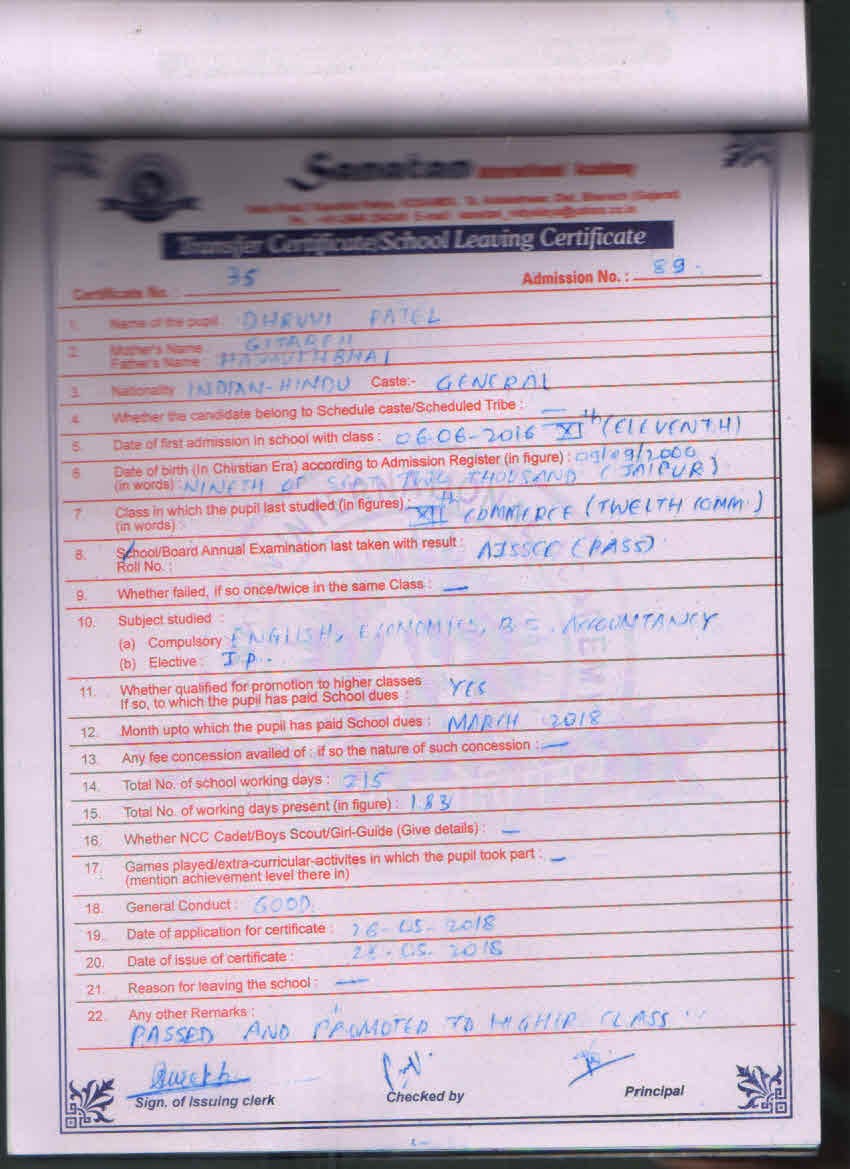 Sanatan International Academy
Transfer Certificate/School Leaving Certificate
Certificate No. : 35 Admission No. : 89.
1. Name of the pupil : DHRUVI PATEL
2. Mother's Name :
Father's Name :
3. Nationality INDIAN-HINDU Caste:- GENERAL
4. Whether the candidate belong to Schedule caste/Scheduled Tribe : —
5. Date of first admission in school with class : 06-06-2016 XIth (ELEVENTH)
6. Date of birth (In Chirstian Era) according to Admission Register (in figure) : 09/09/2000
(in words) : NINETH OF SEPT. TWO THOUSAND (JAIPUR)
7. Class in which the pupil last studied (in figures) : XIIth COMMERCE (TWELTH COMM.)
(in words) :
8. School/Board Annual Examination last taken with result : AISSCE (PASS)
Roll No. :
9. Whether failed, if so once/twice in the same Class : —
10. Subject studied :
(a) Compulsory ENGLISH, ECONOMICS, B.S. ACCOUNTANCY
(b) Elective : I.P.
11. Whether qualified for promotion to higher classes YES
If so, to which the pupil has paid School dues :
12. Month upto which the pupil has paid School dues : MARCH 2018
13. Any fee concession availed of : if so the nature of such concession : —
14. Total No. of school working days : 215
15. Total No. of working days present (in figure) : 183
16. Whether NCC Cadet/Boys Scout/Girl-Guide (Give details) : —
17. Games played/extra-curricular-activites in which the pupil took part : —
(mention achievement level there in)
18. General Conduct : GOOD.
19. Date of application for certificate : 26-05-2018
20. Date of issue of certificate : -05-2018
21. Reason for leaving the school : —
22. Any other Remarks :
PASSED AND PROMOTED TO HIGHER CLASS
Sign. of Issuing clerk Checked by Principal